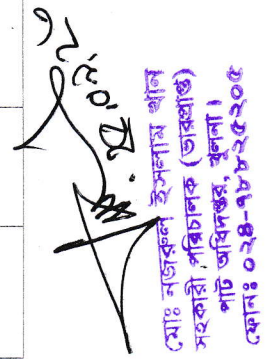 মোঃ নজরুল ইসলাম খান
সহকারী পরিচালক (ভারপ্রাপ্ত)
পাট অধিদপ্তর, খুলনা।
ফোনঃ ০২৪-৭৮৮২৫২০৫